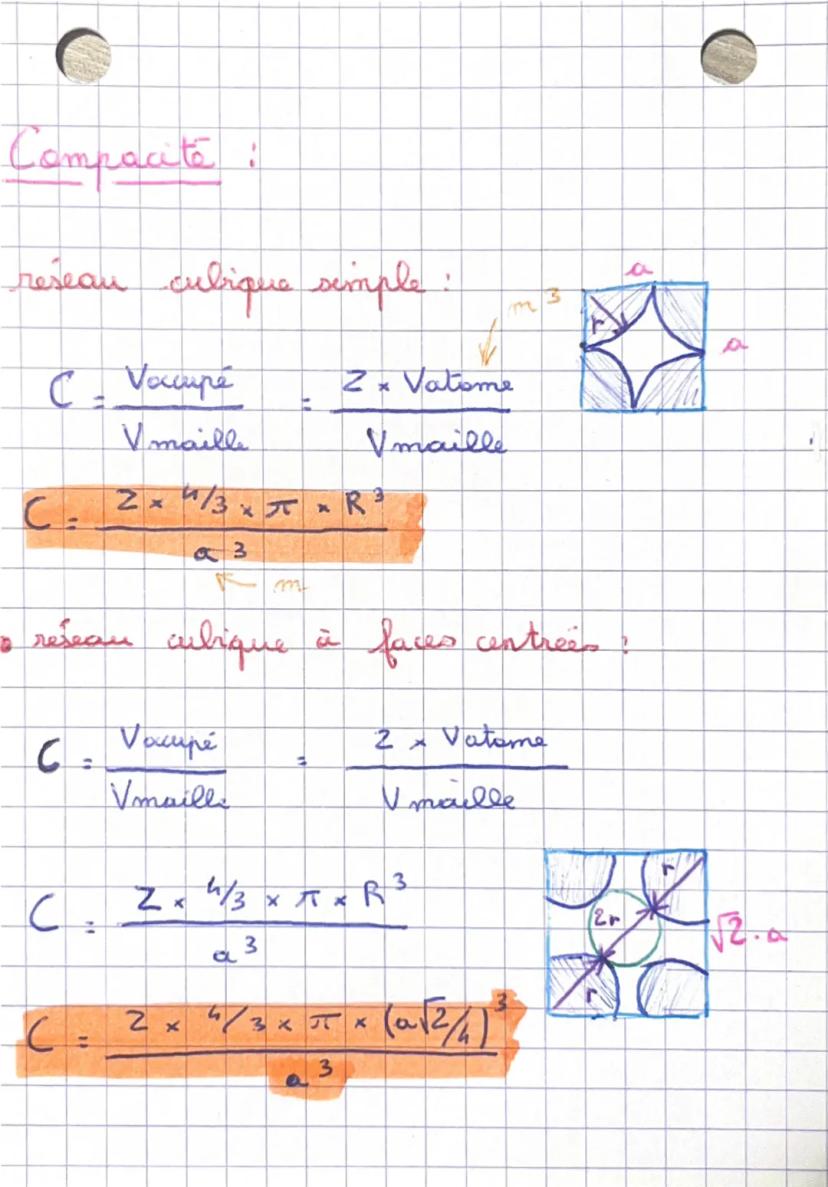 Compacité :
réseau cubique simple :
a
m³
r
a
C = Voccupé / Vmaille = Z × Vatome / Vmaille
C = Z × 4/3 × π × R³ / a³
m
réseau cubique à faces centrées :
C = Voccupé / Vmaille = Z × Vatome / Vmaille
r
2r
r
√2 · a
C = Z × 4/3 × π × R³ / a³
C = Z × 4/3 × π × (a√2/4)³ / a³